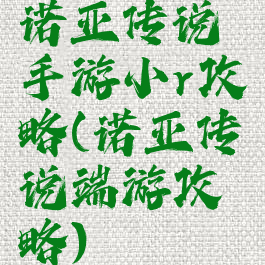 诺亚传说
手游小r攻
略(诺亚传
说端游攻
略)